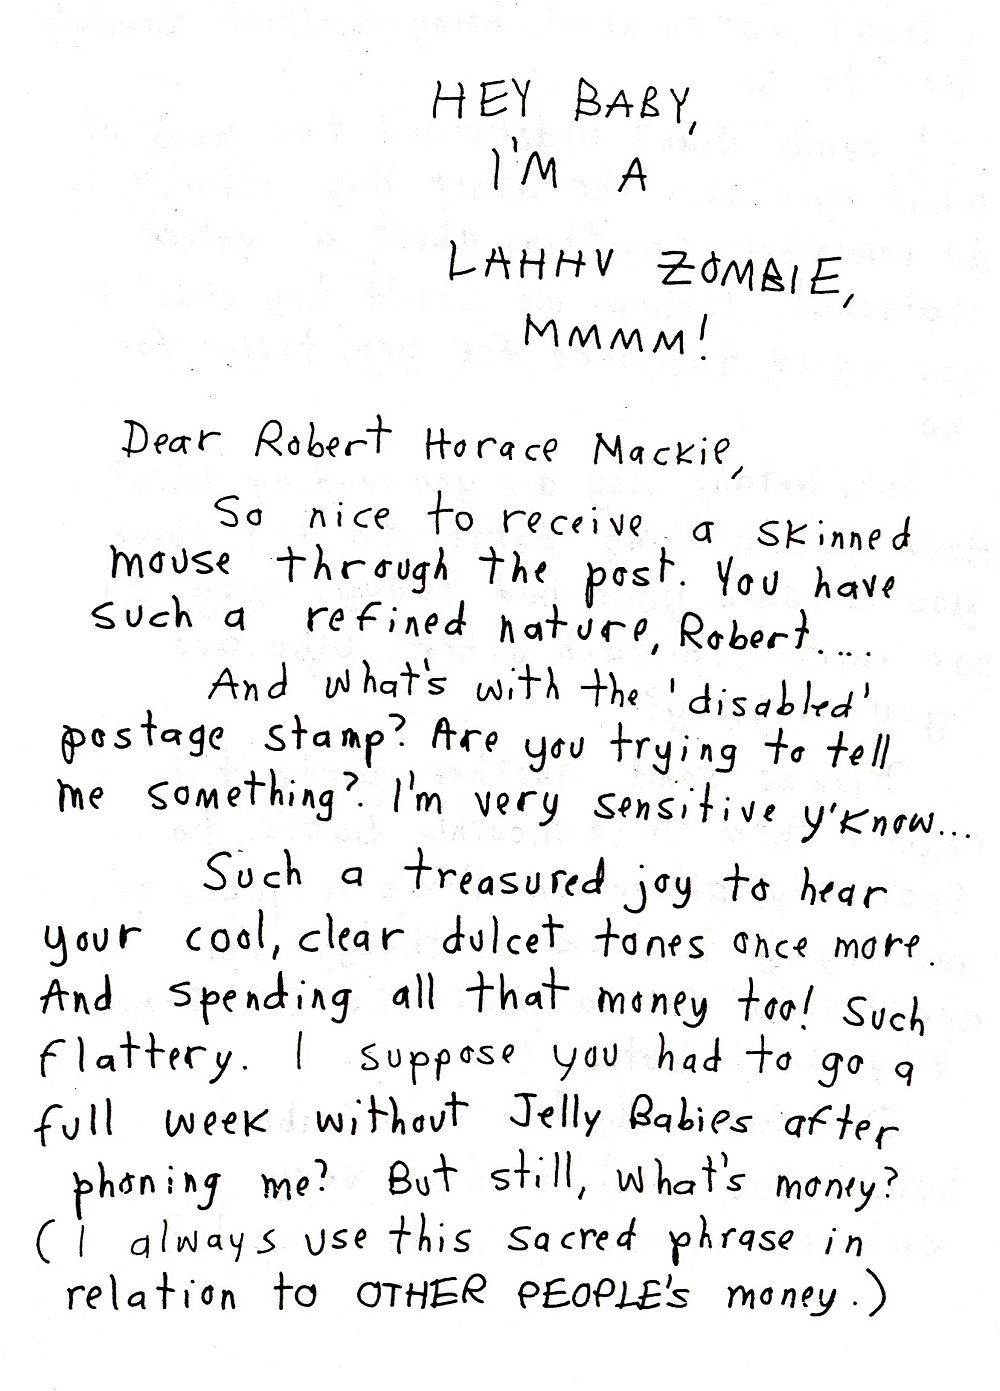 HEY BABY,
I'M A
LAHHV ZOMBIE,
MMMM!
Dear Robert Horace Mackie,
So nice to receive a skinned
mouse through the post. You have
such a refined nature, Robert....
And what's with the 'disabled'
postage stamp? Are you trying to tell
me something?. I'm very sensitive y'know...
Such a treasured joy to hear
your cool, clear dulcet tones once more.
And spending all that money too! Such
flattery. I suppose you had to go a
full week without Jelly Babies after
phoning me? But still, what's money?
(I always use this sacred phrase in
relation to OTHER PEOPLE's money.)